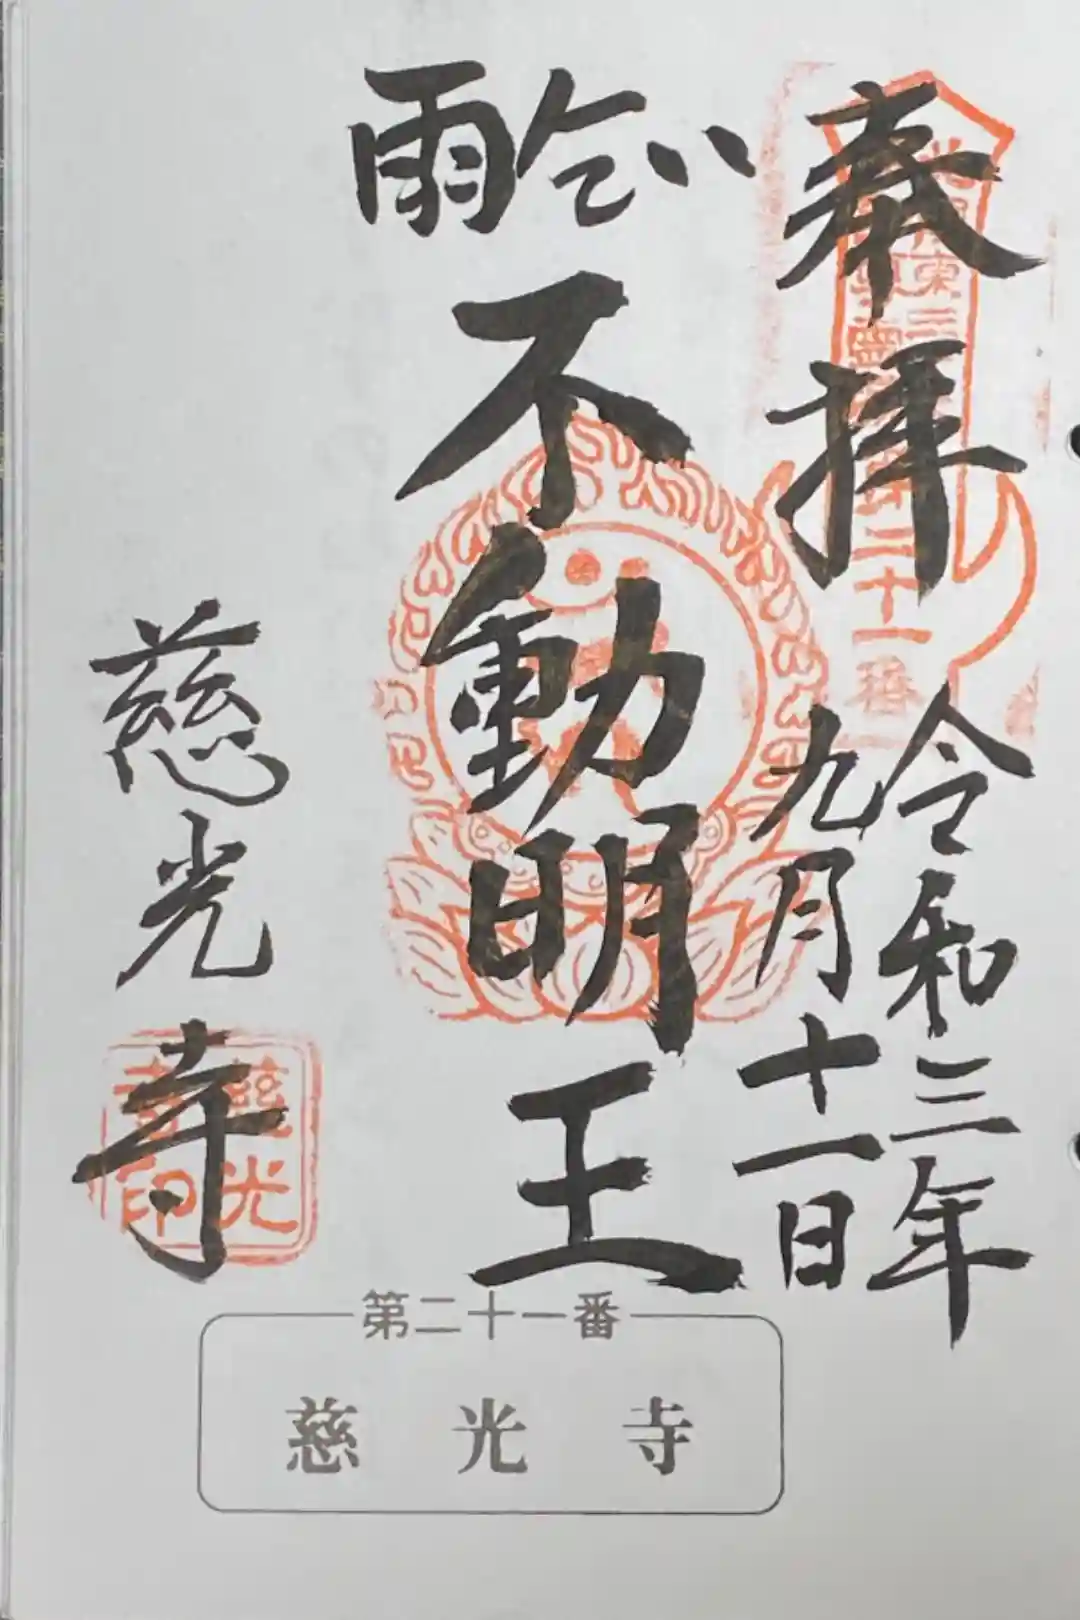 奉拝
二十一番
令和三年
九月十一日
雨乞い
不動明王
慈光寺
慈光
寺印
第二十一番
慈光寺